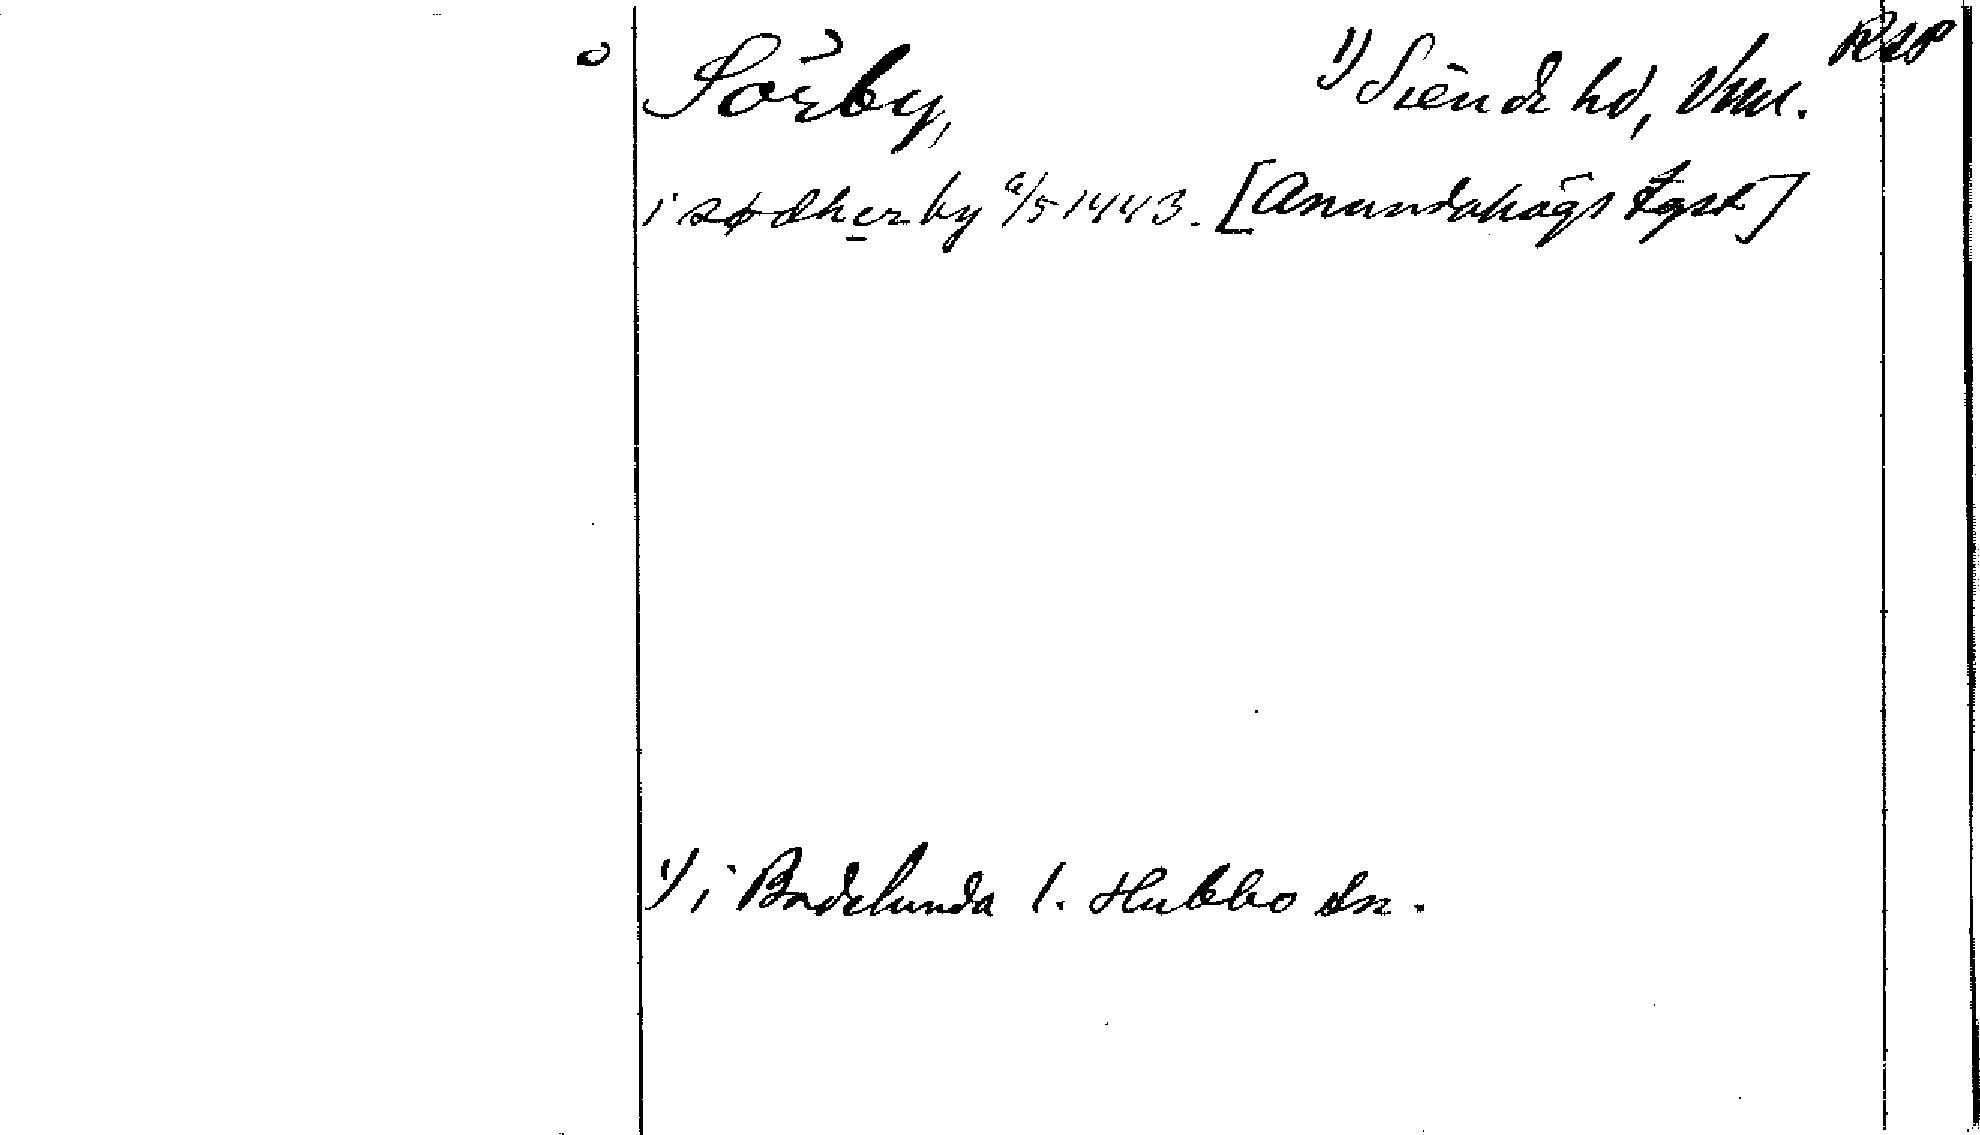 RAP
Sörby, 1) Siende hd, Vml.
i sødherby 6/5 1443. [Anundahögs tgst]
1) i Badelunda l. Hubbo sn.